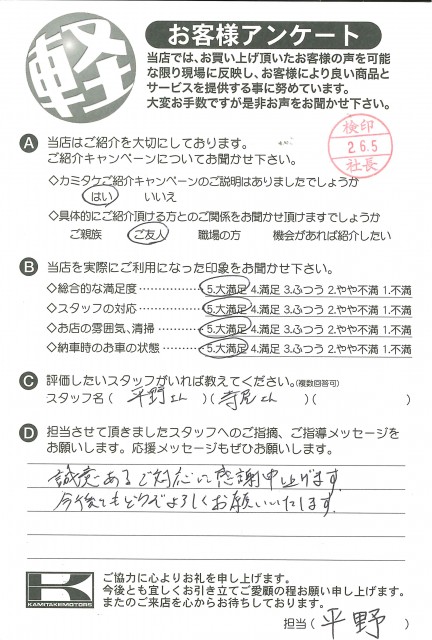 軽
お客様アンケート
当店では、お買い上げ頂いたお客様の声を可能
な限り現場に反映し、お客様により良い商品と
サービスを提供する事に努めています。
大変お手数ですが是非お声をお聞かせ下さい。
A 当店はご紹介を大切にしております。
ご紹介キャンペーンについてお聞かせ下さい。
検印
2 6.5
社長
◇カミタケご紹介キャンペーンのご説明はありましたでしょうか
はい いいえ
◇具体的にご紹介頂ける方とのご関係をお聞かせ頂けますでしょうか
ご親族 ご友人 職場の方 機会があれば紹介したい
B 当店を実際にご利用になった印象をお聞かせ下さい。
◇総合的な満足度 5.大満足 4.満足 3.ふつう 2.やや不満 1.不満
◇スタッフの対応 5.大満足 4.満足 3.ふつう 2.やや不満 1.不満
◇お店の雰囲気、清掃 5.大満足 4.満足 3.ふつう 2.やや不満 1.不満
◇納車時のお車の状態 5.大満足 4.満足 3.ふつう 2.やや不満 1.不満
C 評価したいスタッフがいれば教えてください。(複数回答可)
スタッフ名 ( 平野さん )( 寺尾さん )( )
D 担当させて頂きましたスタッフへのご指摘、ご指導メッセージを
お願いします。応援メッセージもぜひお願いします。
誠意あるご対応に感謝申上げます。
今後ともどうぞよろしくお願いいたします。
K
KAMITAKE MOTORS
ご協力に心よりお礼を申し上げます。
今後とも宜しくお引き立てご愛顧の程お願い申し上げます。
またのご来店を心からお待ちしております。
担当 ( 平野 )